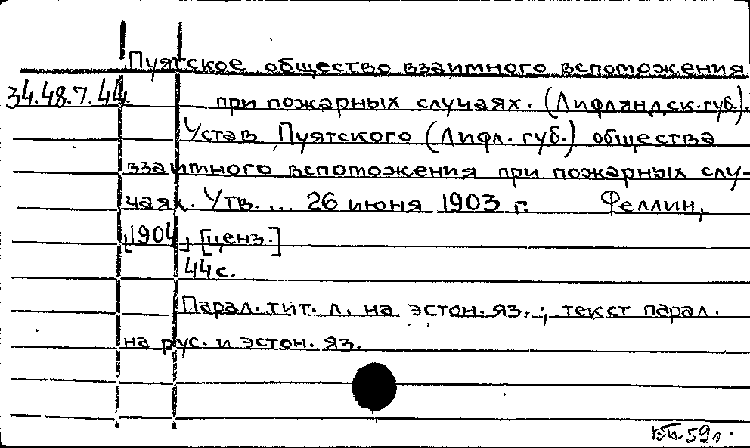 Пуятское общество взаимного вспоможения
34.48.7.44 при пожарных случаях. (Лифляндск. губ.).
Устав Пуятского (Лифл. губ.) общества
взаимного вспоможения при пожарных слу-
чаях. Утв. ... 26 июня 1903 г. Феллин,
[1904] [ценз.]
44 с.
Парал. тит. л. на эстон. яз.; текст парал.
на рус. и эстон. яз.
59